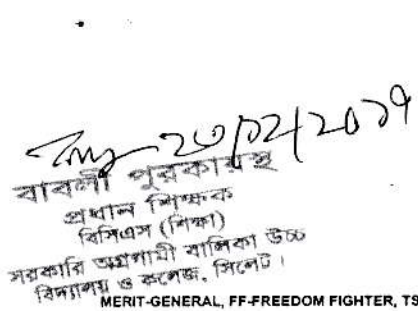 বাবলী পুরকায়স্থ
প্রধান শিক্ষক
বিসিএস (শিক্ষা)
সরকারি অগ্রগামী বালিকা উচ্চ
বিদ্যালয় ও কলেজ, সিলেট।
MERIT-GENERAL, FF-FREEDOM FIGHTER, TS